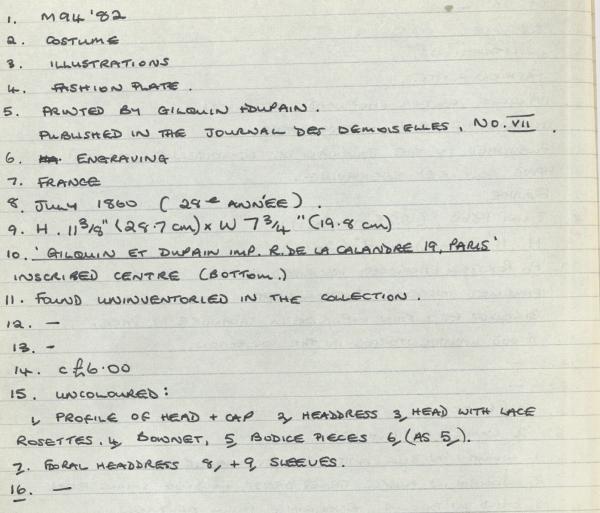 1. M94 '82
2. COSTUME
3. ILLUSTRATIONS
4. FASHION PLATE.
5. PRINTED BY GILQUIN + DUPAIN.
PUBLISHED IN THE JOURNAL DES DEMOISELLES, NO. VII.
6. ENGRAVING
7. FRANCE
8. JULY 1860 (28e ANNÉE).
9. H. 11 3/8" (28.7 cm) x W 7 3/4" (19.8 cm)
10. 'GILQUIN ET DUPAIN IMP. R. DE LA CALANDRE 19, PARIS'
INSCRIBED CENTRE (BOTTOM.)
11. FOUND UNINVENTORIED IN THE COLLECTION.
12. —
13. -
14. c £6.00
15. UNCOLOURED:
1, PROFILE OF HEAD + CAP 2, HEADDRESS 3, HEAD WITH LACE
ROSETTES. 4, BONNET, 5, BODICE PIECES 6, (AS 5,).
7. FORAL HEADDRESS 8, + 9, SLEEVES.
16. —